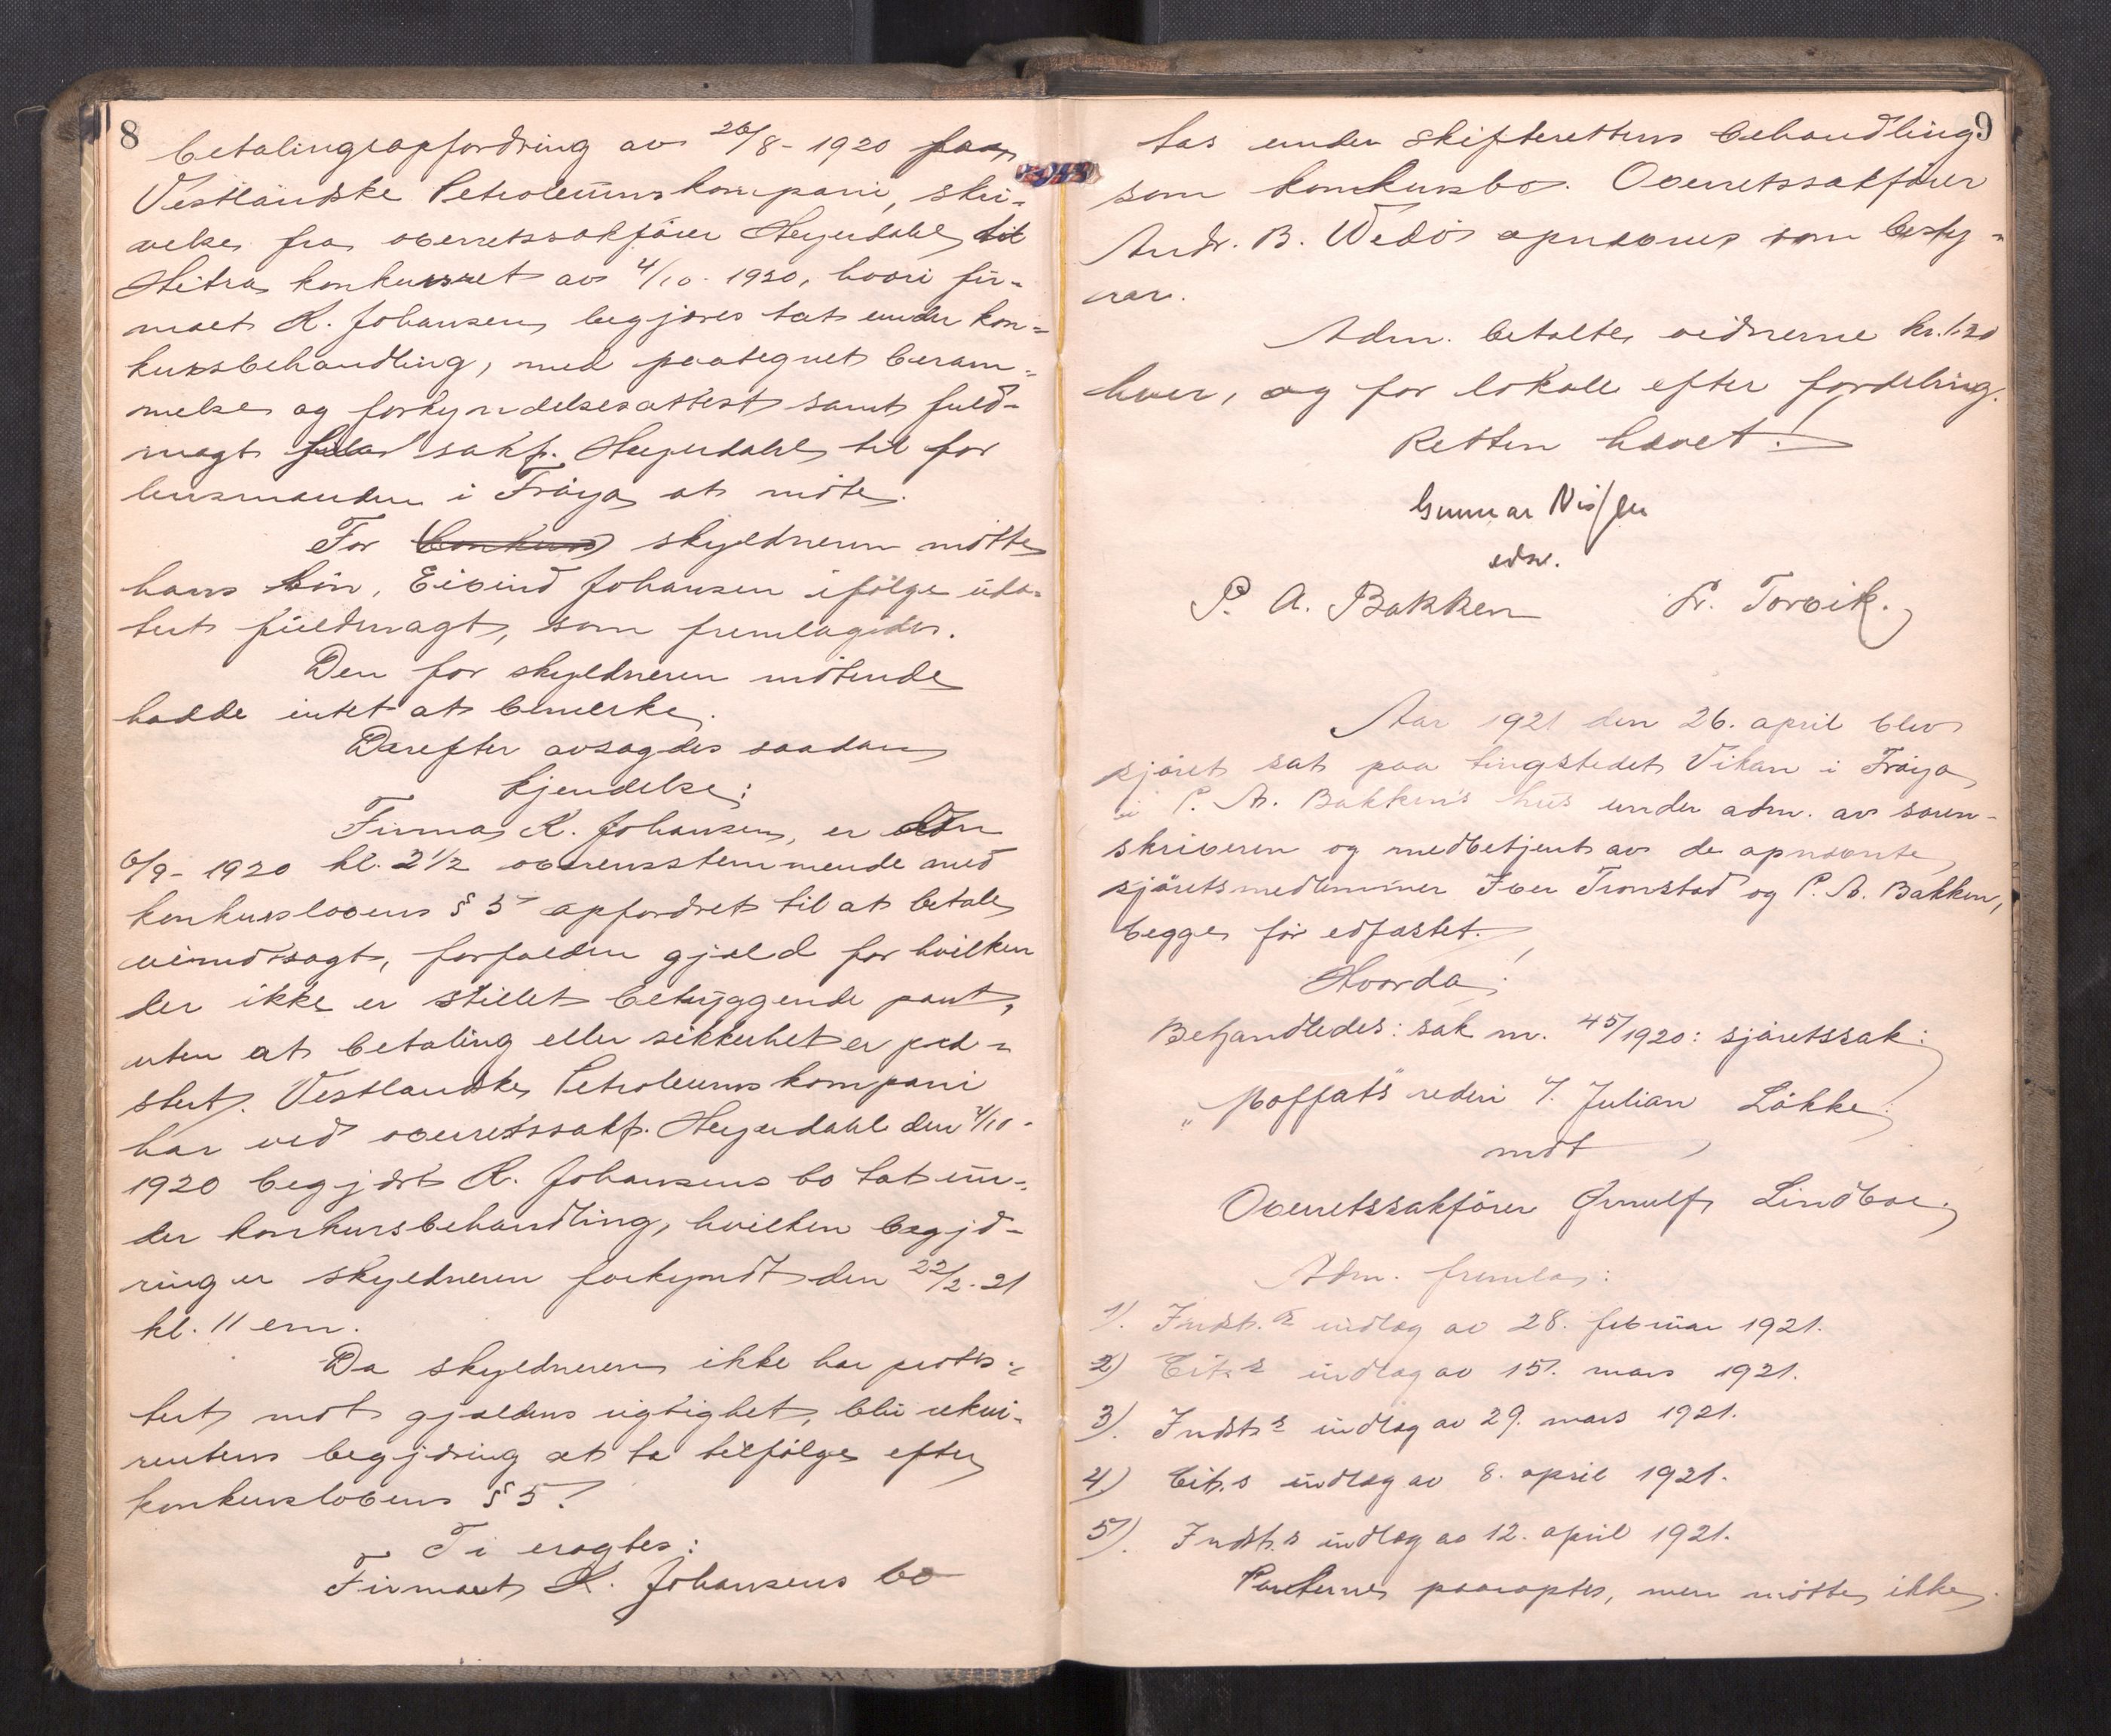 8
betalingsopfordring av 26/8 - 1920 fra
Vestlandske Petroleumskompani, skri-
velse fra overretssakfører Heyerdahl til
Hitra konkursret av 4/10 - 1920, hvori fir-
maet K. Johansen begjæres tat under kon-
kursbehandling, med paategnet beram-
melse og forkyndelsesattest samt fuld-
magt fra o.r. sakf. Heyerdahl til for
lensmanden i Frøya at møte.
For Conkurs skyldneren møtte
hans søn, Eivind Johansen ifølge uda-
tert fuldmagt, som fremlagdes.
Den for skyldneren møtende
hadde intet at bemerke.
Derefter avsagdes saadan
kjendelse:
Firma K. Johansen, er den
6/9 - 1920 kl. 2 1/2 overensstemmende med
konkurslovens § 5 opfordret til at betale
uimotsagt, forfalden gjæld for hvilken
der ikke er stillet betryggende pant,
uten at betaling eller sikkerhet er præ-
stert. Vestlandske Petroleumskompani
har ved overretssakf. Heyerdahl den 4/10 -
1920 begjært K. Johansens bo tat un-
der konkursbehandling, hvilken begjæ-
ring er skyldneren forkyndt den 22/2 - 21
kl. 11 em.
Da skyldneren ikke har protes-
tert mot gjældens rigtighet, blir rekvi-
rentens begjæring at ta tilfølge efter
konkurslovens § 5.
Ti eragtes:
Firmaet K. Johansens bo
9
tas under skifterettens behandling
som konkursbo. Overretssakfører
Andr. B. Wedø opnevnes som besty-
rer.
Adm. betalte vidnerne kr. 1.20
hver, og for lokale efter fordeling.
Retten hævet.
Gunnar Nissen
edsv.
P. A. Bakken Fr. Torvik.
Aar 1921 den 26. april blev
sjøret sat paa tingstedet Vikan i Frøya
i P. A. Bakken's hus under adm. av soren-
skriveren og medbetjent av de opnævnte
sjøretsmedlemmer Iver Tronstad og P. A. Bakken,
begge før edfæstet.
Hvorda:
Behandledes: sak nr. 45/1920: sjøretssak:
"Moffats" rederi v. Julian Løkke
mot
Overretssakfører Ørnulf Lindboe.
Adm. fremla:
1). Indst.s indlæg av 28. februar 1921.
2) Cit.s indlæg av 15. mars 1921.
3). Indst.s indlæg av 29. mars 1921.
4) Cit.s indlæg av 8. april 1921.
5). Indst.s indlæg av 12. april 1921.
Parterne paaroptes, men møtte ikke.